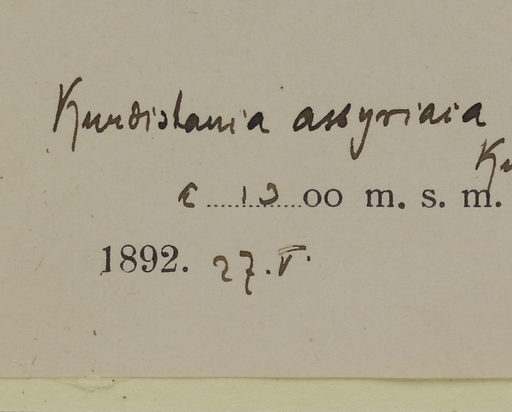 Kurdistania assyriaca
Ku
c 1300 m. s. m.
1892. 27.V.